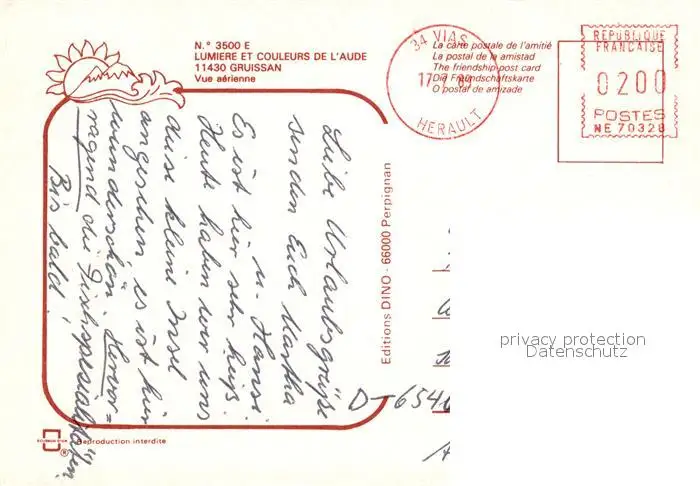 N.° 3500 E
LUMIERE ET COULEURS DE L'AUDE
11430 GRUISSAN
Vue aérienne
La carte postale de l'amitié
La postal de la amistad
The friendship post card
Die Freundschaftskarte
O postal de amizade
34 VIAS
17
HERAULT
REPUBLIQUE
FRANCAISE
0200
POSTES
NE 70328
Liebe Urlaubsgrüße
senden Euch Martha
u. Hansi
Es ist hier sehr heiß.
Heute haben wir uns
diese kleine Insel
angesehen es ist hier
wunderschön. Hervor=
ragend die Fischspezialitäten.
Bis bald!
Editions DINO - 66000 Perpignan
D-654
privacy protection
Datenschutz
Reproduction interdite
®